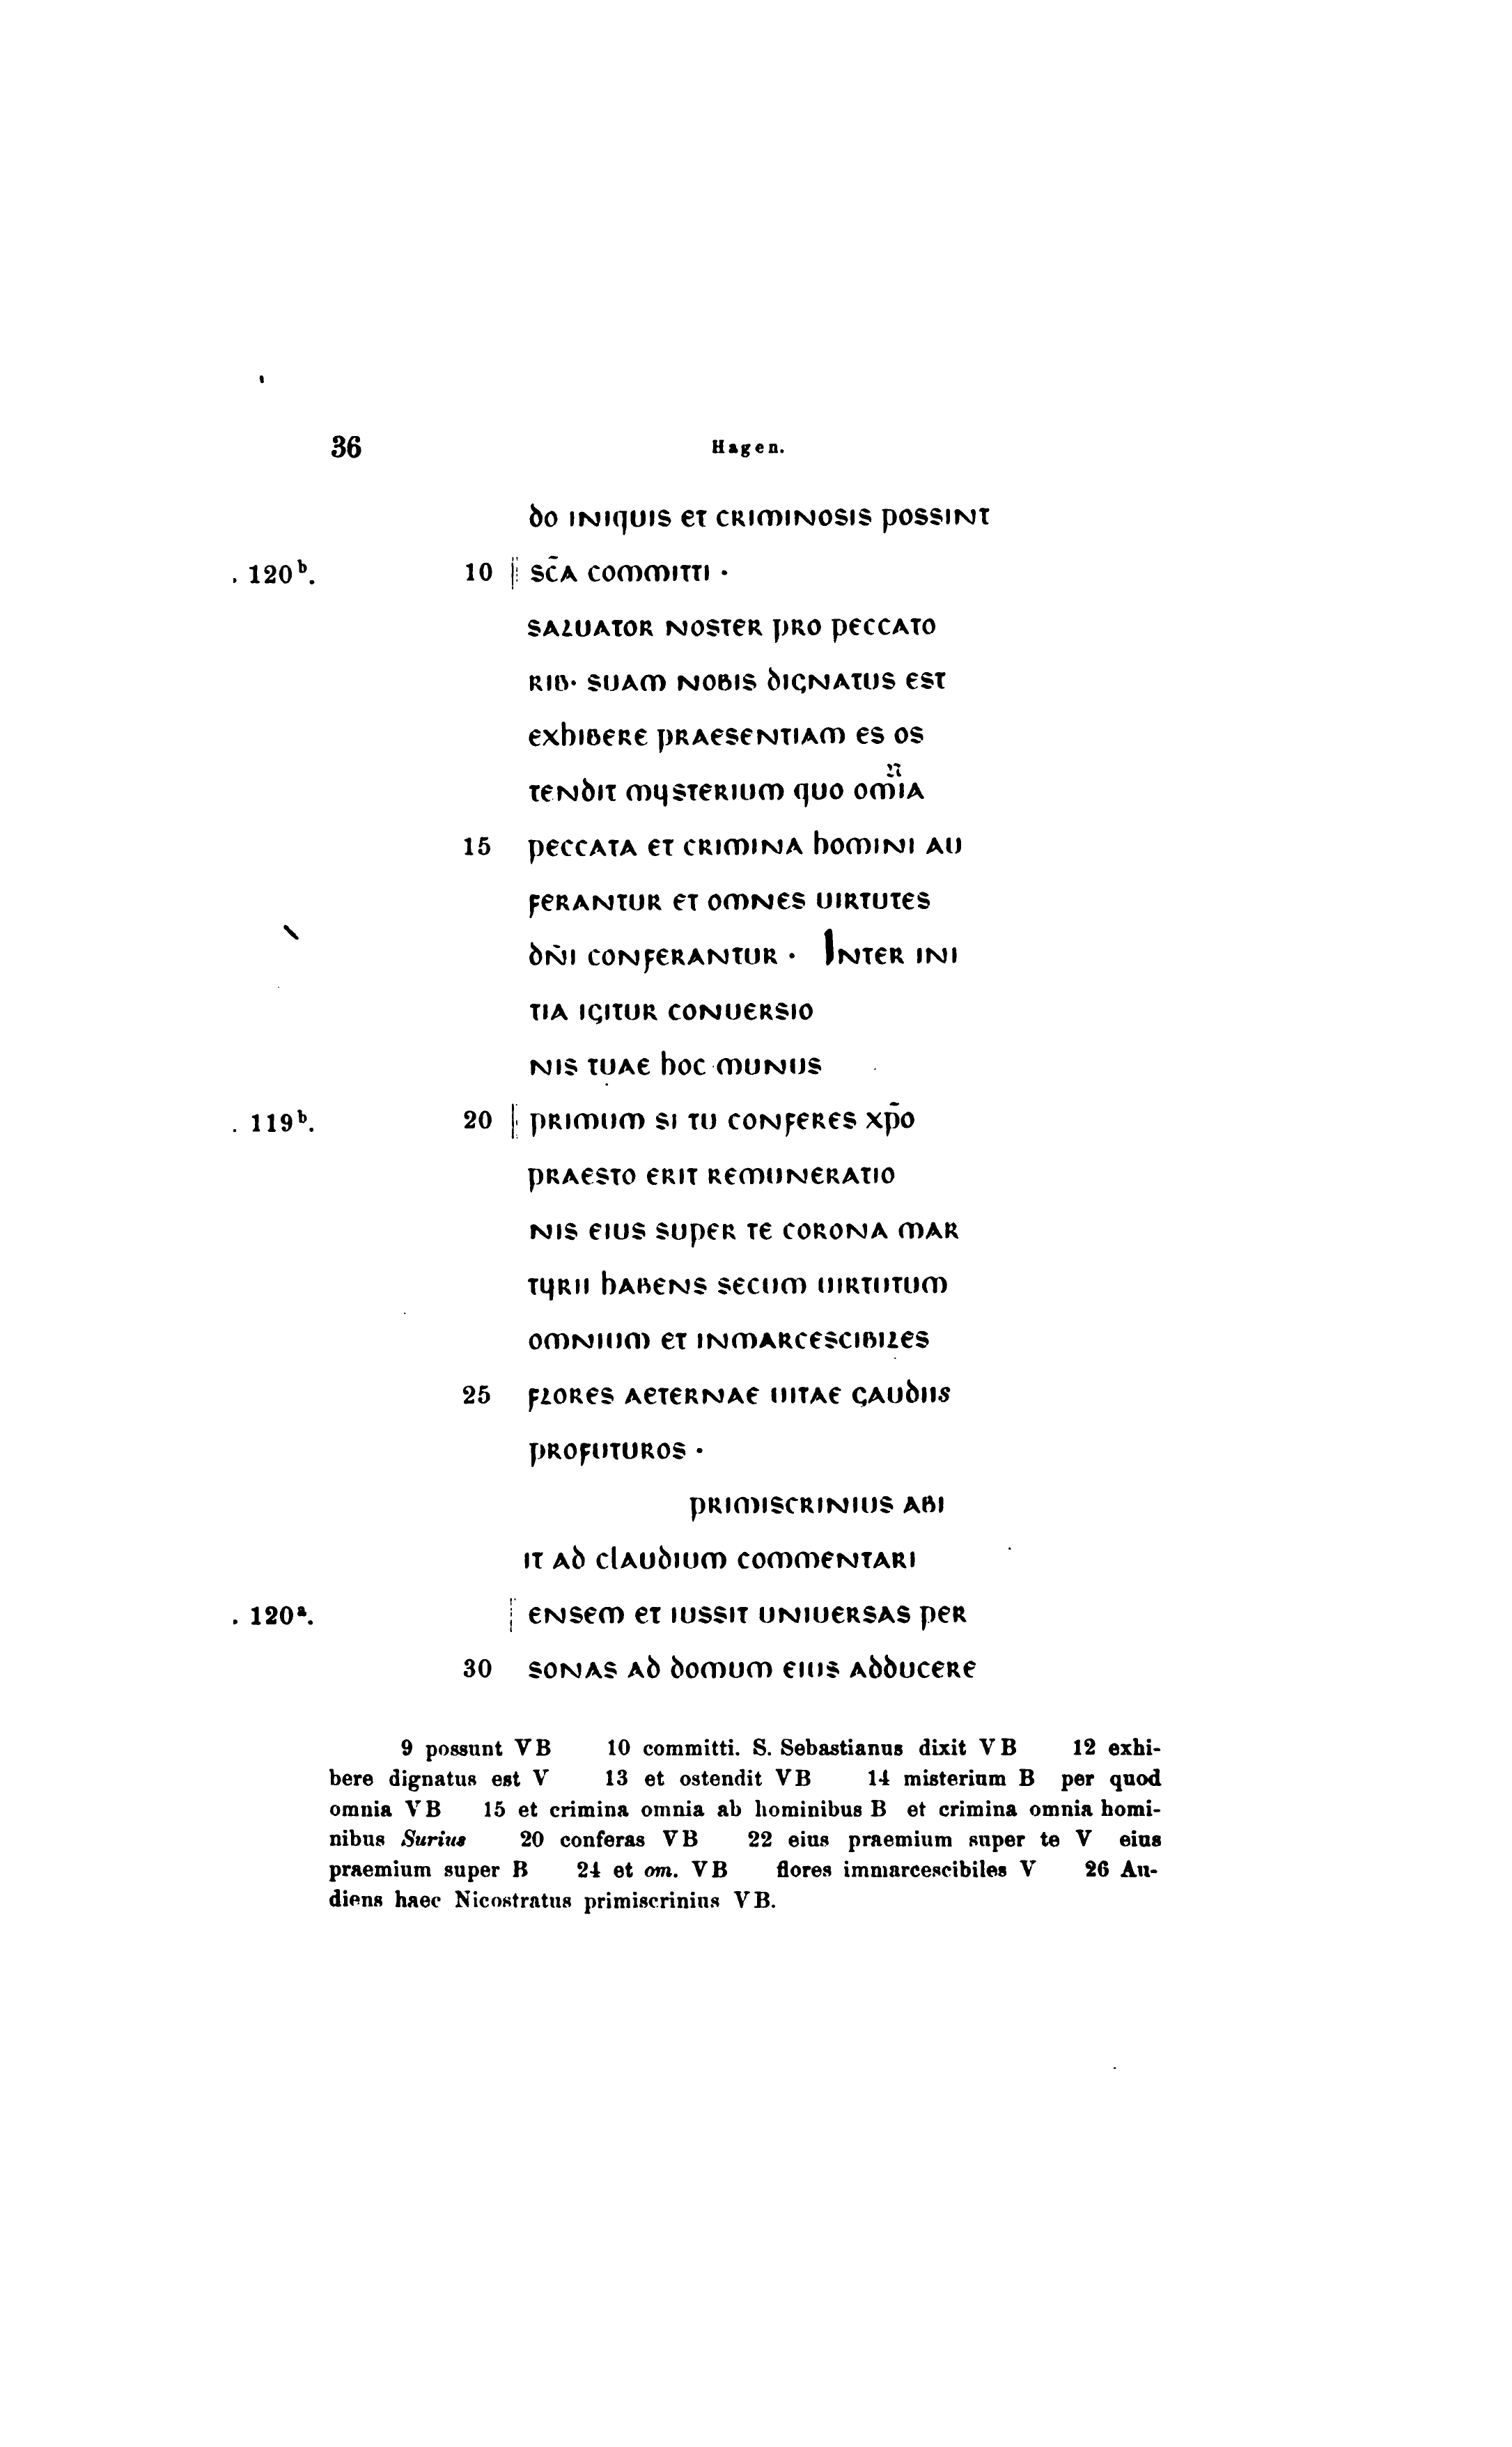 36 Hagen.
do iniquis et criminosis possint
. 120ᵇ. 10 ‖ sc̄a committi ·
saluator noster pro peccato
rib· suam nobis dignatus est
exhibere praesentiam es os
tendit mysterium quo om̅ⁿia
15 peccata et crimina homini au
ferantur et omnes uirtutes
dn̄i conferantur · Inter ini
tia igitur conuersio
nis tuae hoc munus
. 119ᵇ. 20 ‖ primum si tu conferes xp̄o
praesto erit remuneratio
nis eius super te corona mar
tyrii habens secum uirtutum
omnium et inmarcescibiles
25 flores aeternae uitae gaudiis
profuturos ·
primiscrinius abi
it ad claudium commentari
. 120ᵃ. | ensem et iussit uniuersas per
30 sonas ad domum eius adducere
9 possunt VB 10 committi. S. Sebastianus dixit VB 12 exhi-
bere dignatus est V 13 et ostendit VB 14 misterium B per quod
omnia VB 15 et crimina omnia ab hominibus B et crimina omnia homi-
nibus Surius 20 conferas VB 22 eius praemium super te V eius
praemium super B 24 et om. VB flores immarcescibiles V 26 Au-
diens haec Nicostratus primiscrinius VB.